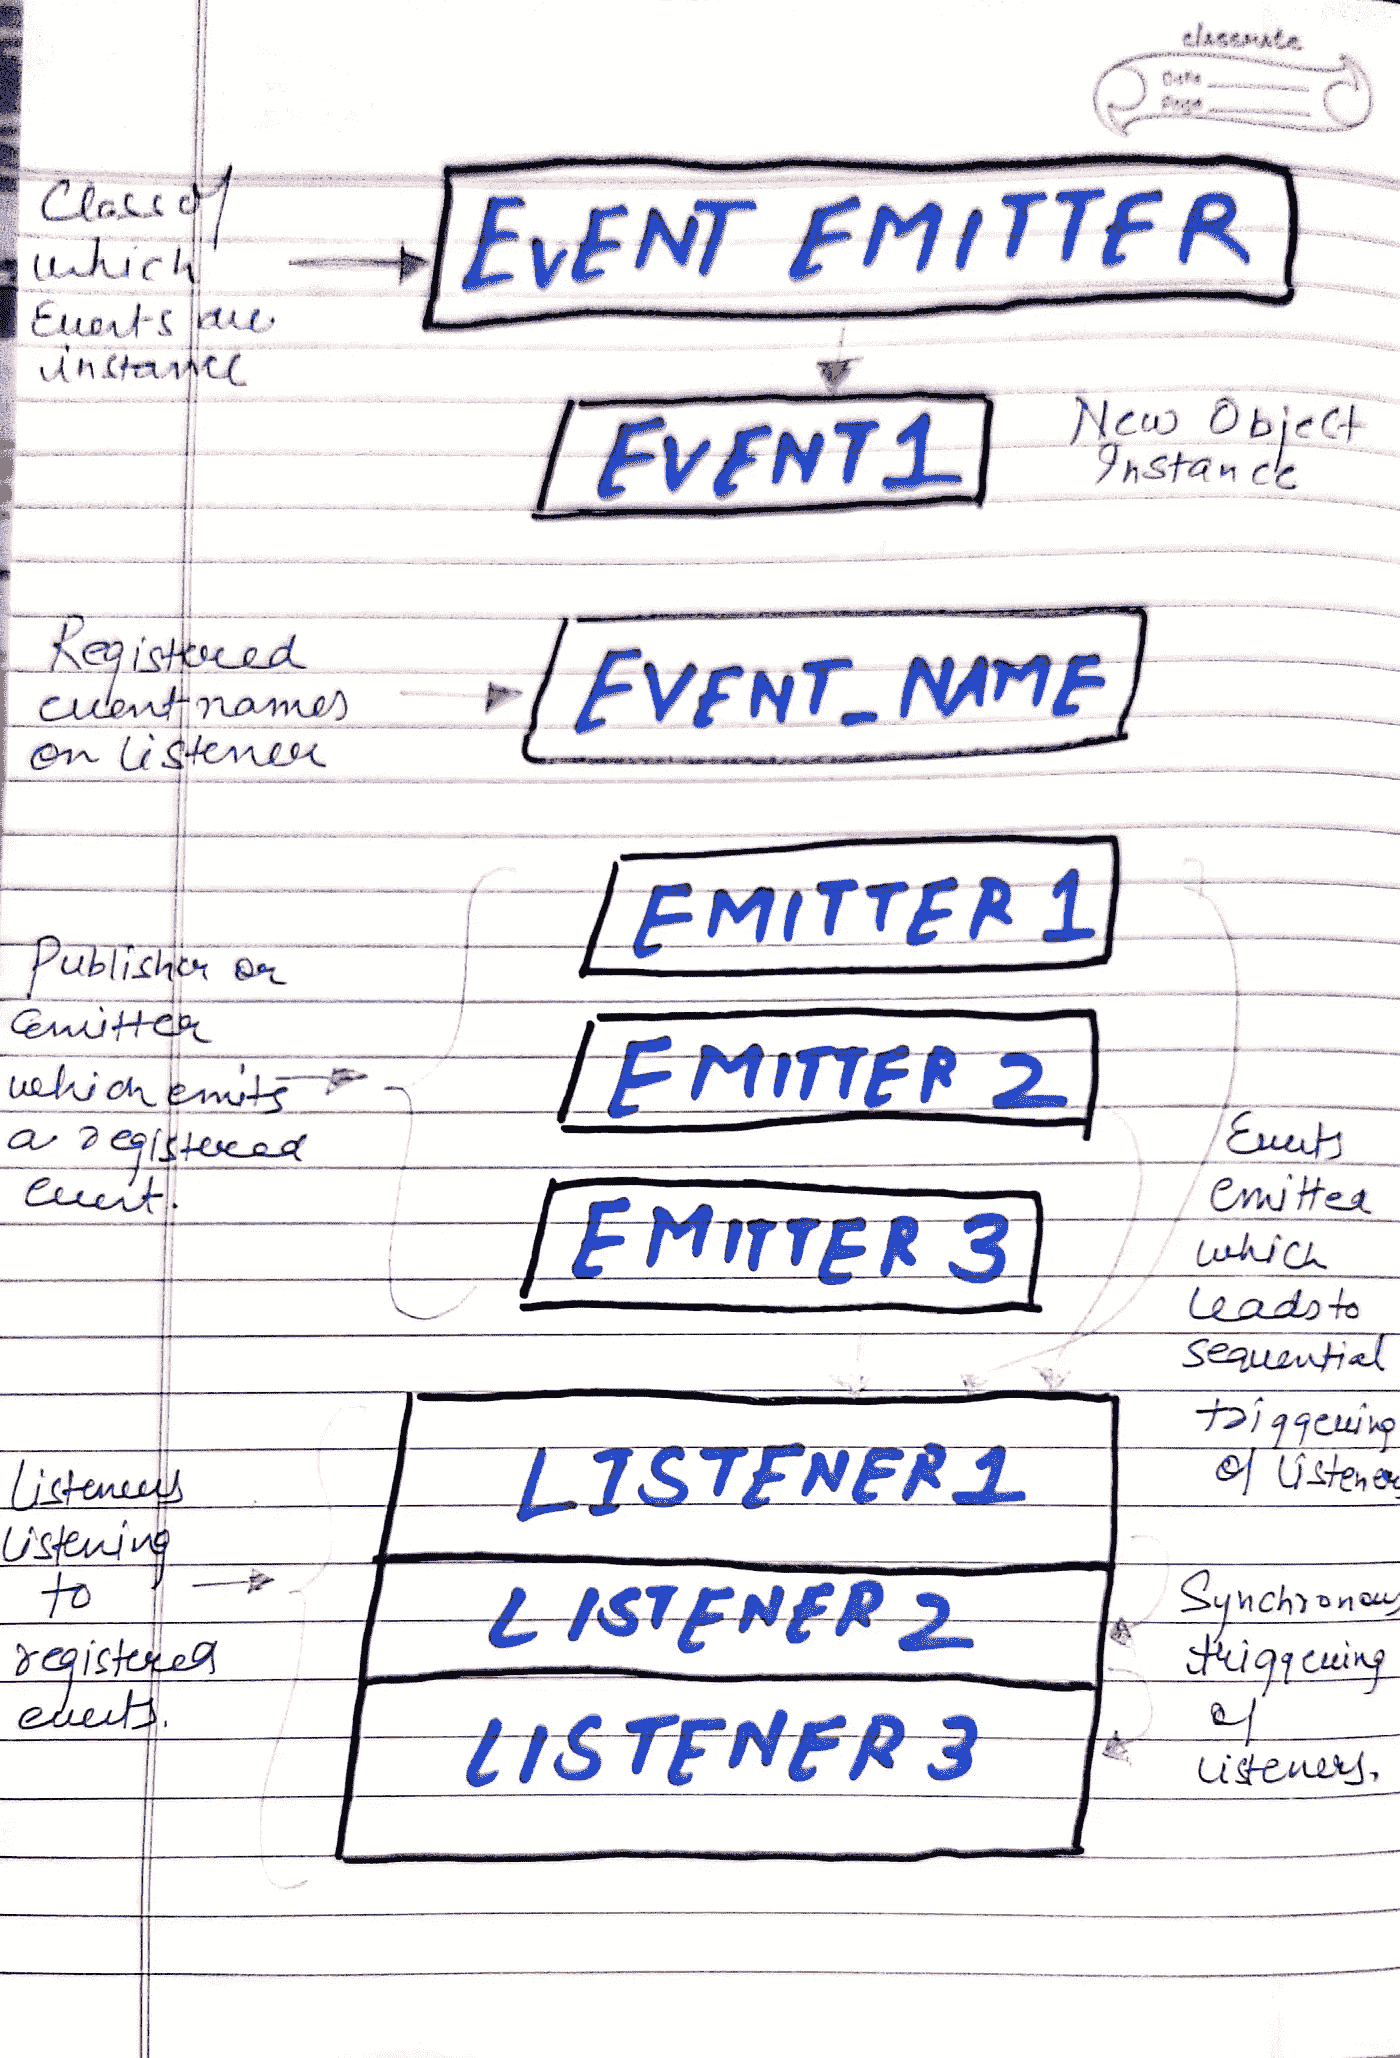 classmate
Date
Page
Class of
which
Events are
instance
EVENT EMITTER
EVENT 1
New Object
Instance
Registered
eventnames
on listener
EVENT_NAME
EMITTER 1
Publisher or
emitter
which emits
a registered
event.
EMITTER 2
EMITTER 3
Events
emitted
which
leads to
sequential
triggering
of listener
LISTENER 1
Listeners
listening
to
registered
events.
LISTENER 2
LISTENER 3
Synchronous
triggering
of
listeners.